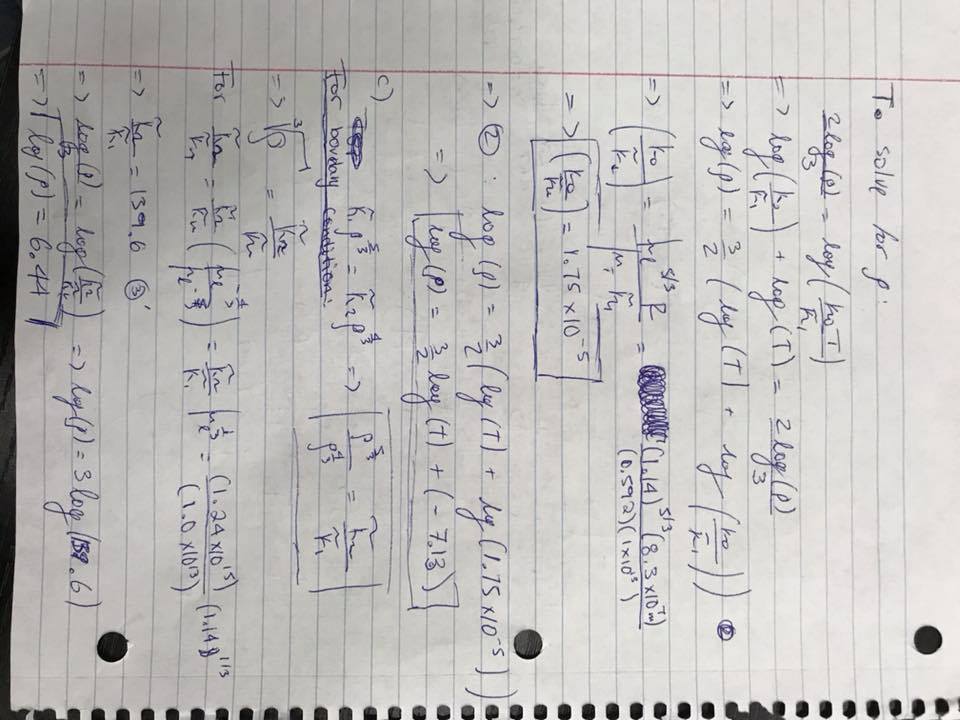 To solve for ρ:
2log(ρ)/3 = log(k₀T/k̃₁)
=> log(k₀/k̃₁) + log(T) = 2log(ρ)/3
=> log(ρ) = 3/2 (log(T) + log(k₀/k̃₁)) ②
=> (k₀/k̃₁) = μₑ^5/3 R / μᵢ k̃₁ = (1.14)^5/3 (8.3x10⁷) / (0.592)(1x10¹³)
=> (k₀/k̃₁) = 1.75 x 10⁻⁵
=> ②: log(ρ) = 3/2 (log(T) + log(1.75x10⁻⁵))
=> log(ρ) = 3/2 log(T) + (-7.13)
c) k̃₁ρ^5/3 = k̃₂ρ^4/3 => ρ^5/3 / ρ^4/3 = k̃₂/k̃₁
For boundary condition:
=> ³√ρ = k̃₂/k̃₁
For k̃₂/k̃₁ = k̃₂/k̃₁ (μₑ^-4/3 / μₑ^-5/3) = k̃₂/k̃₁ μₑ^1/3 = (1.24x10¹⁵)/(1.0x10¹³) (1.14)^1/3
=> k̃₂/k̃₁ = 139.6 ③
=> log(ρ)/3 = log(k̃₂/k̃₁) => log(ρ) = 3log(139.6)
=> log(ρ) = 6.44